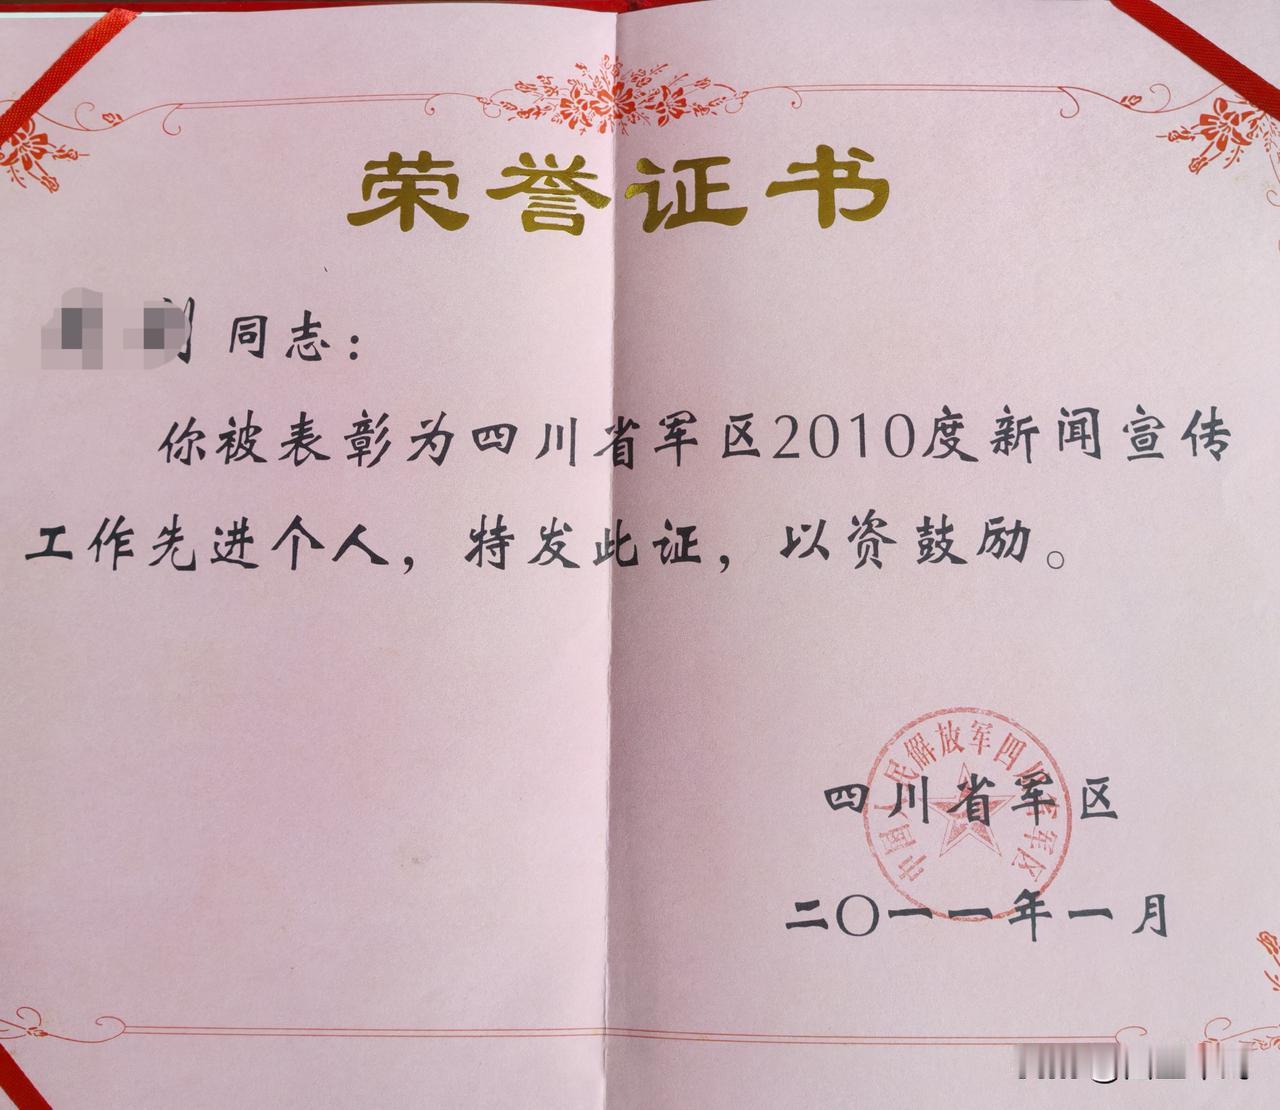 荣誉证书
同志：
你被表彰为四川省军区2010度新闻宣传
工作先进个人，特发此证，以资鼓励。
中国人民解放军四川省军区
四川省军区
二〇一一年一月